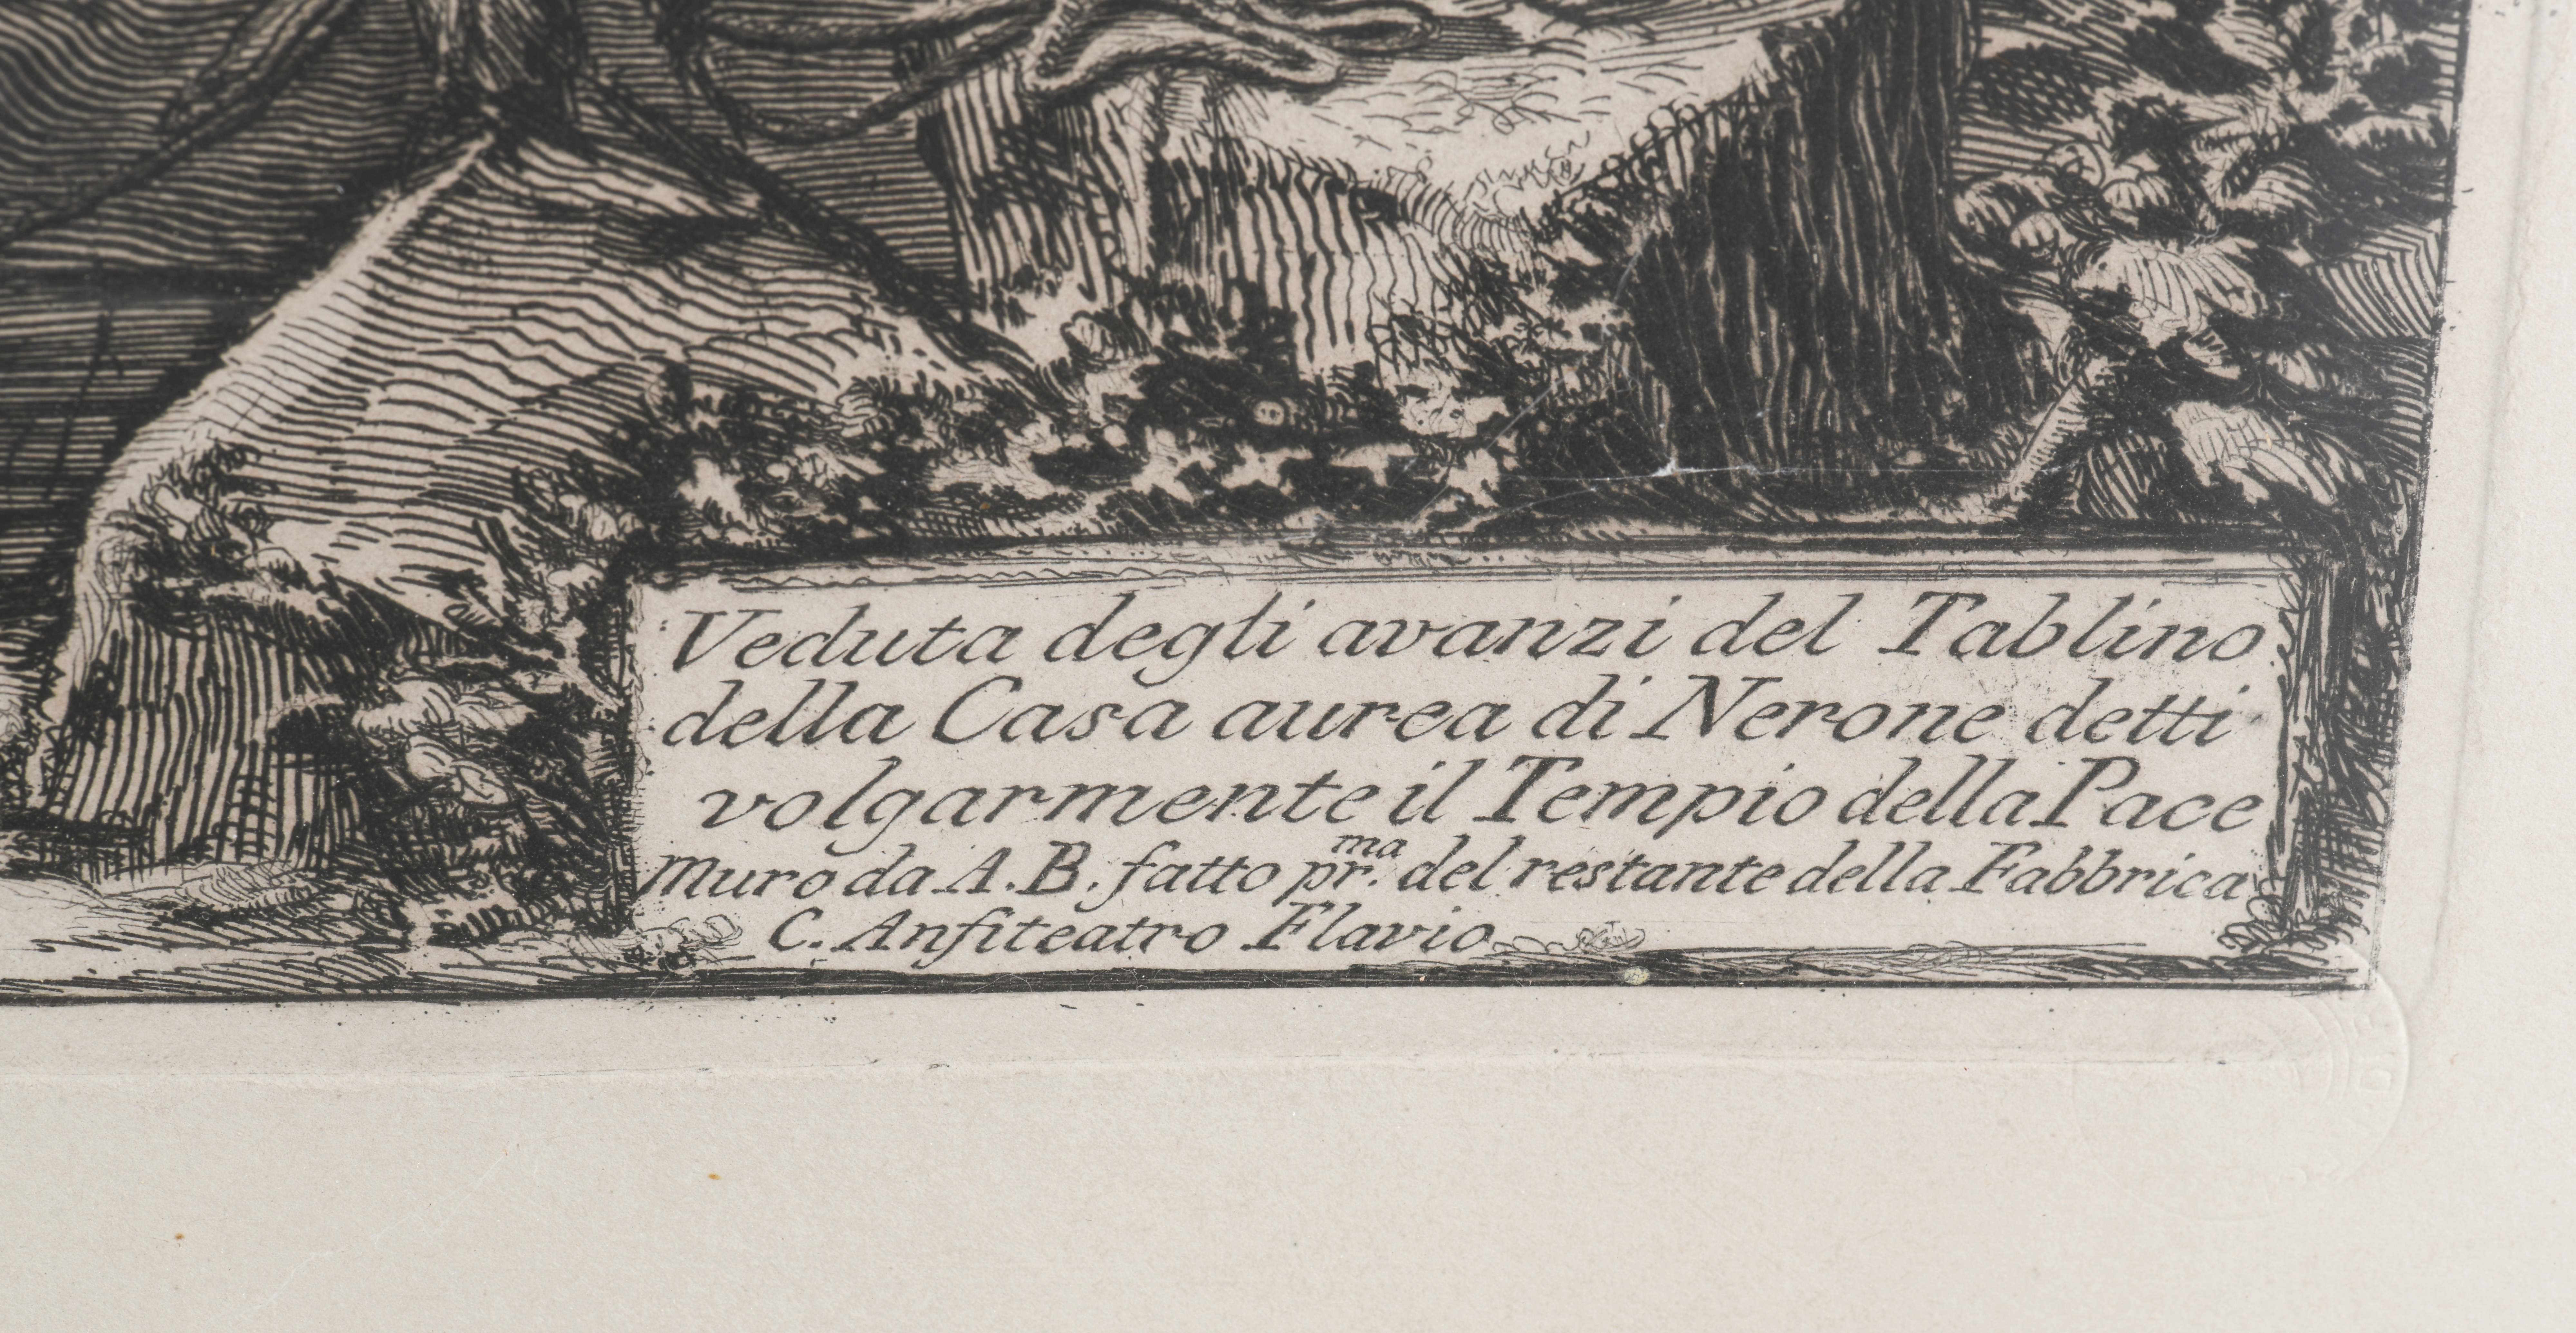 Veduta degli avanzi del Tablino
della Casa aurea di Nerone detti
volgarmente il Tempio della Pace
Muro da A. B. fatto pr.ma del restante della Fabbrica
C. Anfiteatro Flavio